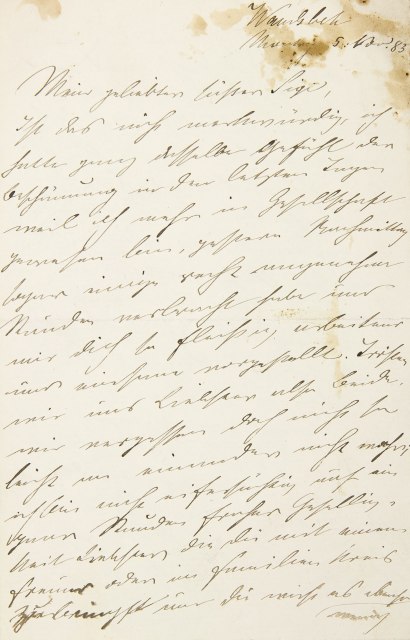 Wandsbek
Montag 5. Nov. 83
Mein geliebter süßer Sigi,
Ist das nicht merkwürdig, ich
hatte ganz dasselbe Gefühl der
Beschämung in den letzten Tagen
weil ich mehr in Gesellschaft
gewesen bin, gestern Nachmittag
sogar einige recht angenehme
Stunden verbracht habe und
mir dich so fleißig arbeitend
und einsam vorgestellt. Trösten
wir uns Liebster alle beide,
wir vergessen doch nicht so
leicht an einander nicht wahr,
ich bin nicht eifersüchtig auf ein
paar Stunden froher Gesellig-
keit Liebster die du mit einem
Freund oder im Familien Kreis
zubringst und du wirst es ebenso
wenig